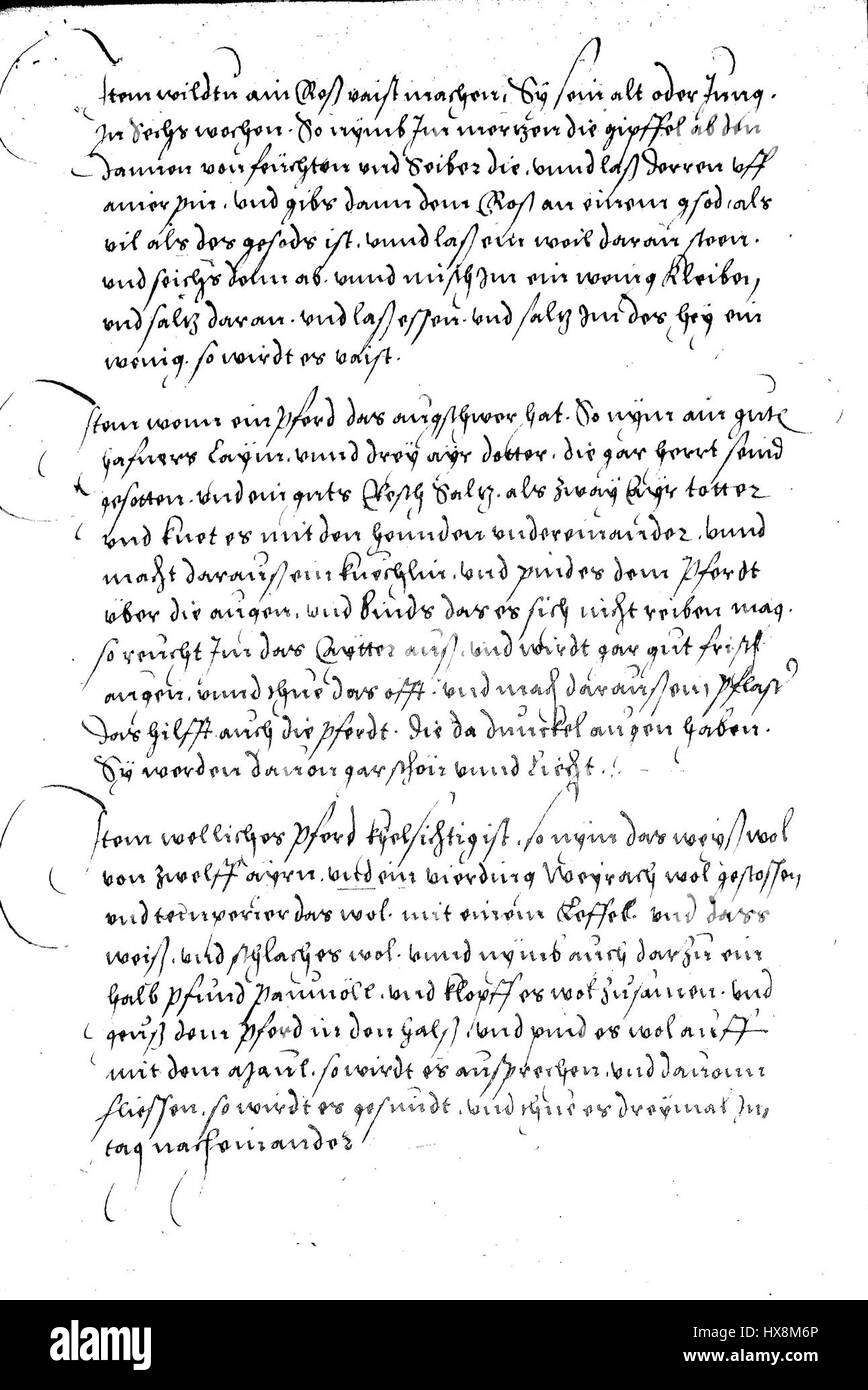 Item wildtu ain Roß vaist machen, Sÿ sein alt oder Jung.
In Sechs wochen. So nÿmb Im mertzen die gipffel ab den
dannen von feüchten vnd Seiber die, vnnd laß derren vff
ainer pin, vnd gibs dann dem Roß an einem gsod, als
vil als des gesods ist, vnnd laß ein weil daran steen.
vnd seichs denn ab, vnnd misch Im ein wenig Kleiben,
vnd saltz daran, vnd laß essen, vnd saltz Im des heÿ ein
wenig, so wirdt es vaist.
Item wenn ein Pferd das augschwer hat. So nÿm ain gute
hafners Laÿm, vnnd dreÿ aÿr dotter, die gar herrt seind
gesotten, vnd ein guts Resch Saltz, als zwaÿ Aÿr totter
vnd knet es mit den hennden vndereinander, vnnd
macht darauß ein kuechlin, vnd pind es dem Pferdt
über die augen, vnd binds das es sich nicht reiben mag.
so reucht Im das Aÿtter auß, vnd wirdt gar gut frisch
augen, vnnd thue das offt, vnd mach darauß ein Pflast
das hilfft auch die Pferdt, die da dunckel augen haben.
Sÿ werden dauon gar schön vnnd Liecht.
Item welliches Pferd kelsichtig ist, so nÿm das weÿß wol
von zwelff aÿrn, vnd ein vierding Weÿrach wol gestossen,
vnd temperier das wol mit einem Leffel vnd dass
weiß, vnd schlach es wol, vnnd nÿmb auch darzu ein
halb pfund Paumöll, vnd klopff es wol zusamen, vnd
geuß dem Pferd in den halß, vnd pind es wol auff
mit dem Maul, so wirdt es ausprechen, vnd dauonn
fliessen, so wirdt es gesundt, vnd thue es dreÿmal Im
tag nach einander
alamy
Image ID: HX8M6P
www.alamy.com